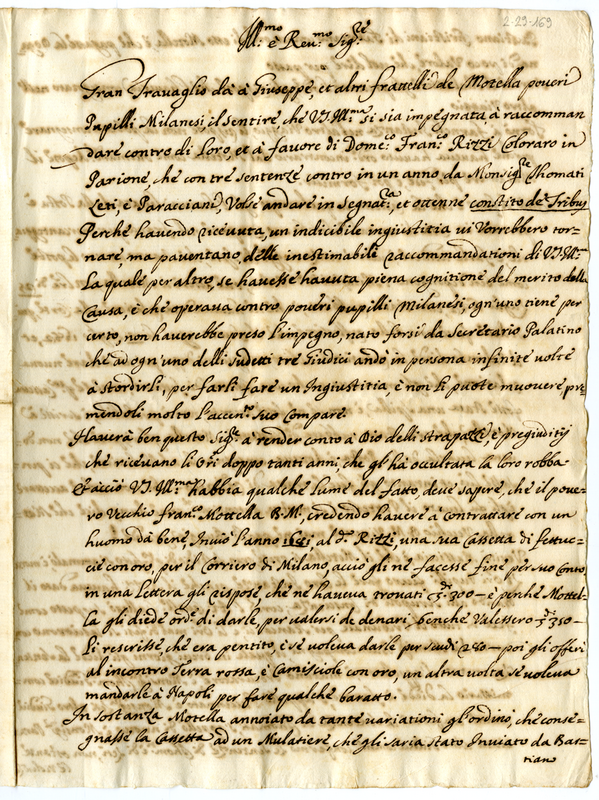 2-29-169
Ill:mo è Reu:mo Sig:re
Gran Trauaglio dà à Giuseppe, et altri frattelli de Motella poueri
Pupilli Milanesi, il sentire, che V.S. Ill:ma si sia impegnata, à raccomman
dare contro di Loro, et à fauore di Dome:co Fran:co Rizzi Coloraro in
Parione, che con tre sentenze contro in un anno, da Monsig:re Thomati
Leti, è Paracciani, Volse andare in Segnat:ra, et ottenne constito de Tribus
Perche hauendo riceuuta, un indicibile ingiustitia ui Vorrebbero tor=
nare, ma pauentano, delle inestimabili raccommandationi di V.S. Ill:ma
La quale per altro, se hauesse hauuta piena cognitione del merito della
Causa, è che operaua contro poueri pupilli Milanesi, ogn'uno tiene per
certo, non hauerebbe preso l'impegno, nato forsi da Secretario Palatino
che ad ogn'uno delli sudetti tre Giudici andò in persona infinite uolte
à stordirli, per farli fare un Ingiustitia, è non li puote muouere, pre=
mendoli molto l'accen:to suo Compare.
Hauerà ben questo Sig:re à render conto à Dio delli strapazzi, è pregiuditij
che riceuano li O:ri doppo tanti anni, che gl'hà occultata la loro robba
Et acciò V.S. Ill:ma habbia qualche lume del fatto, deue sapere, che il poue=
ro Vecchio Fran:co Mottella B.M., credendo hauere à contrattare con un
huomo dà bene, Inuiò l'anno 1681 al d:o Rizzi, una sua Cassetta di fettuc=
cie con oro, per il Corriero di Milano, acciò gli ne facesse fine per suo Conto,
in una Lettera gli rispose, che ne haueua trouati 300 — è perche Mottel=
la gli diede ord:e di darle, per ualersi de denari, benche Valessero 350 —
Li rescrisse, che era pentito, è se uoleua darle per scudi 280 — poi gli offeri
al incontro Terra rossa, è Camisciole con oro, un altra uolta se uoleua
mandarle à Napoli per fare qualche baratto.
In sostanza Motella annoiato da tante uariationi gl'ordinò, che conse=
gnasse la Cassetta ad un Mulatiere, che gli saria stato Inuiato da Bas=
tiano